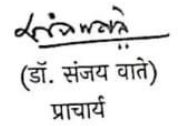 (डॉ. संजय वाते)
प्राचार्य